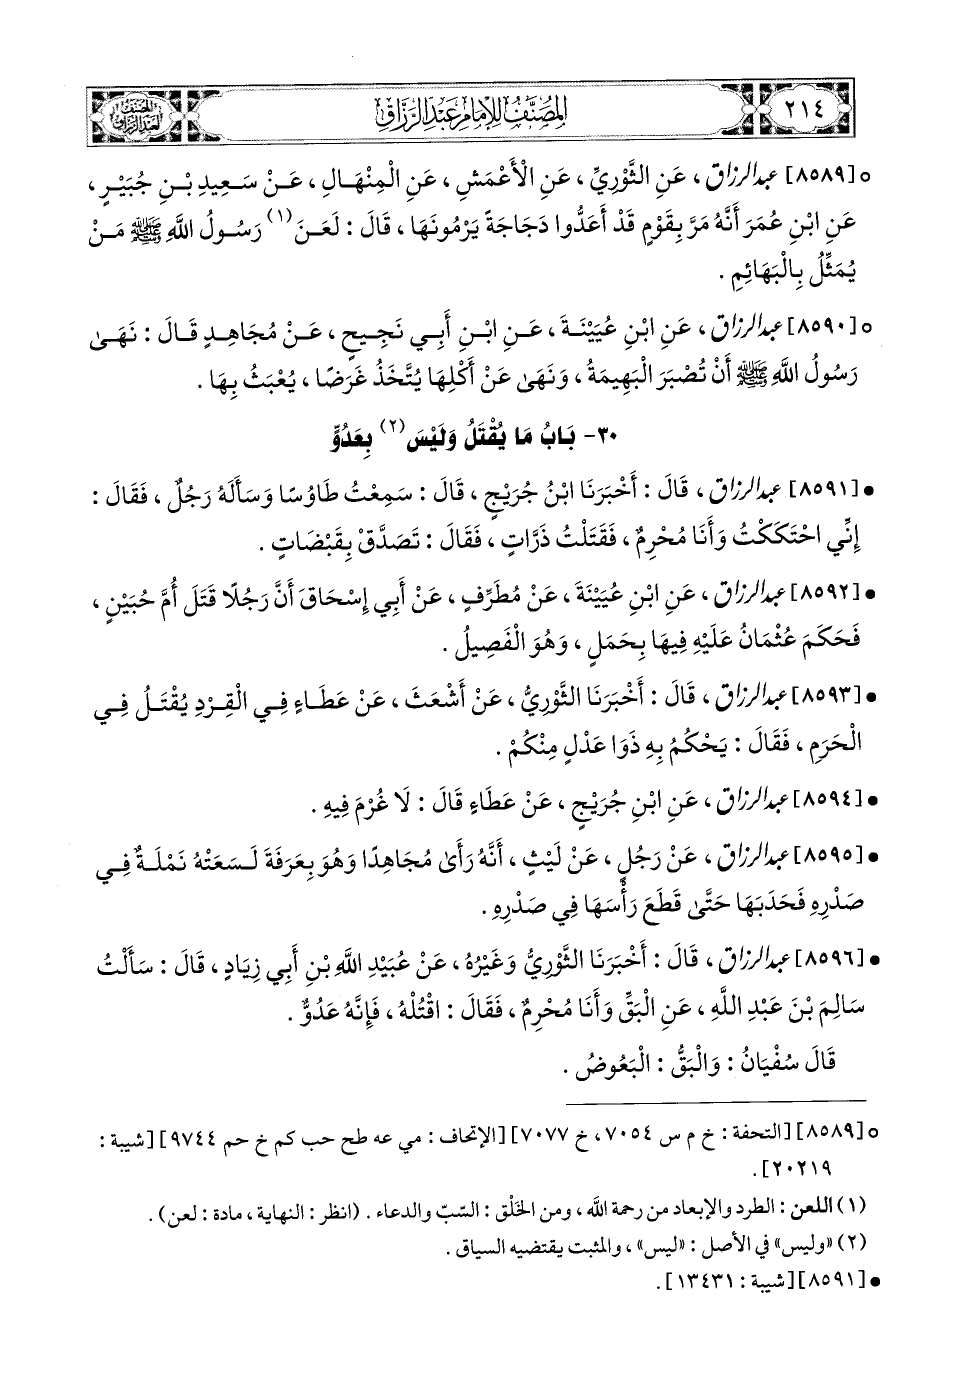 ٢١٤
المصنف للإمام عبد الرزاق
المصنف لعبد الرزاق
○ [٨٥٨٩] عبد الرزاق، عَنِ الثَّوْرِيِّ، عَنِ الْأَعْمَشِ، عَنِ الْمِنْهَالِ، عَنْ سَعِيدِ بْنِ جُبَيْرٍ،
عَنِ ابْنِ عُمَرَ أَنَّهُ مَرَّ بِقَوْمٍ قَدْ أَعَدُّوا دَجَاجَةً يَرْمُونَهَا، قَالَ: لَعَنَ (١) رَسُولُ اللَّهِ ﷺ مَنْ
يُمَثِّلُ بِالْبَهَائِمِ.
○ [٨٥٩٠] عبد الرزاق، عَنِ ابْنِ عُيَيْنَةَ، عَنِ ابْنِ أَبِي نَجِيحٍ، عَنْ مُجَاهِدٍ قَالَ: نَهَىٰ
رَسُولُ اللَّهِ ﷺ أَنْ تُصْبَرَ الْبَهِيمَةُ، وَنَهَىٰ عَنْ أَكْلِهَا يُتَّخَذُ غَرَضًا، يُعْبَثُ بِهَا.
٣٠- بَابُ مَا يُقْتَلُ وَلَيْسَ (٢) بِعَدُوٍّ
• [٨٥٩١] عبد الرزاق، قَالَ: أَخْبَرَنَا ابْنُ جُرَيْجٍ، قَالَ: سَمِعْتُ طَاوُسًا وَسَأَلَهُ رَجُلٌ، فَقَالَ:
إِنِّي احْتَكَكْتُ وَأَنَا مُحْرِمٌ، فَقَتَلْتُ ذَرَّاتٍ، فَقَالَ: تَصَدَّقْ بِقَبَضَاتٍ.
• [٨٥٩٢] عبد الرزاق، عَنِ ابْنِ عُيَيْنَةَ، عَنْ مُطَرِّفٍ، عَنْ أَبِي إِسْحَاقَ أَنَّ رَجُلًا قَتَلَ أُمَّ حُبَيْنٍ،
فَحَكَمَ عُثْمَانُ عَلَيْهِ فِيهَا بِحَمَلٍ، وَهُوَ الْفَصِيلُ.
• [٨٥٩٣] عبد الرزاق، قَالَ: أَخْبَرَنَا الثَّوْرِيُّ، عَنْ أَشْعَثَ، عَنْ عَطَاءٍ فِي الْقِرْدِ يُقْتَلُ فِي
الْحَرَمِ، فَقَالَ: يَحْكُمُ بِهِ ذَوَا عَدْلٍ مِنْكُمْ.
• [٨٥٩٤] عبد الرزاق، عَنِ ابْنِ جُرَيْجٍ، عَنْ عَطَاءٍ قَالَ: لَا غُرْمَ فِيهِ.
• [٨٥٩٥] عبد الرزاق، عَنْ رَجُلٍ، عَنْ لَيْثٍ، أَنَّهُ رَأَىٰ مُجَاهِدًا وَهُوَ بِعَرَفَةَ لَسَعَتْهُ نَمْلَةٌ فِي
صَدْرِهِ فَحَدَبَهَا حَتَّىٰ قَطَعَ رَأْسَهَا فِي صَدْرِهِ.
• [٨٥٩٦] عبد الرزاق، قَالَ: أَخْبَرَنَا الثَّوْرِيُّ وَغَيْرُهُ، عَنْ عُبَيْدِ اللَّهِ بْنِ أَبِي زِيَادٍ، قَالَ: سَأَلْتُ
سَالِمَ بْنَ عَبْدِ اللَّهِ، عَنِ الْبَقِّ وَأَنَا مُحْرِمٌ، فَقَالَ: اقْتُلْهُ، فَإِنَّهُ عَدُوٌّ.
قَالَ سُفْيَانُ: وَالْبَقُّ: الْبَعُوضُ.
○ [٨٥٨٩] [التحفة: خ م س ٧٠٥٤، خ ٧٠٧٧] [الإتحاف: مي عه طح حب كم خ حم ٩٧٤٤] [شيبة:
٢٠٢١٩].
(١) اللعن: الطرد والإبعاد من رحمة الله، ومن الخَلْق: السّبّ والدعاء. (انظر: النهاية، مادة: لعن).
(٢) «وليس» في الأصل: «ليس»، والمثبت يقتضيه السياق.
• [٨٥٩١] [شيبة: ١٣٤٣١].